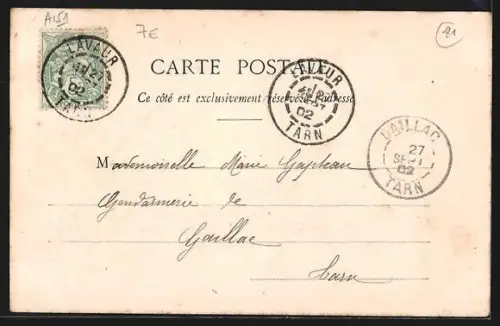 A151
7E
81
LAVAUR
02
TARN
CARTE POSTALE
LAVUR
02
TARN
Ce côté est exclusivement réservé à l'adresse
GAILLAC
27
SEPT
02
TARN
Mademoiselle Marie
Gendarmerie de
Gaillac
Tarn